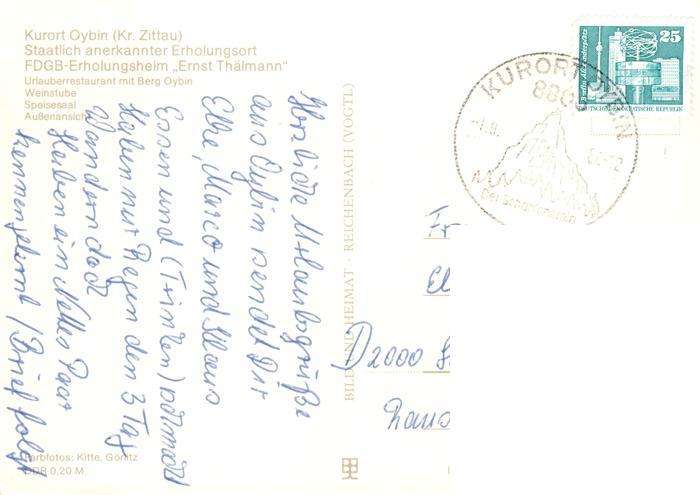 Kurort Oybin (Kr. Zittau)
Staatlich anerkannter Erholungsort
FDGB-Erholungsheim „Ernst Thälmann"
Urlauberrestaurant mit Berg Oybin
Weinstube
Speisesaal
Außenansicht
Herzliche Urlaubsgrüße
aus Oybin sendet Dir
Elke, Marco und Klaus
Essen und (Trinken) normal
Haben nur Regen den 3 Tag
Wandern doch
Haben ein nettes Paar
kennengelernt / Brief folgt
Farbfotos: Kitte, Görlitz
DDR 0,20 M
BILD UND HEIMAT · REICHENBACH (VOGTL)
25
DEUTSCHE DEMOKRATISCHE REPUBLIK
KURORT OYBIN
880
Der Scharfenstein
Fr
El
D2000